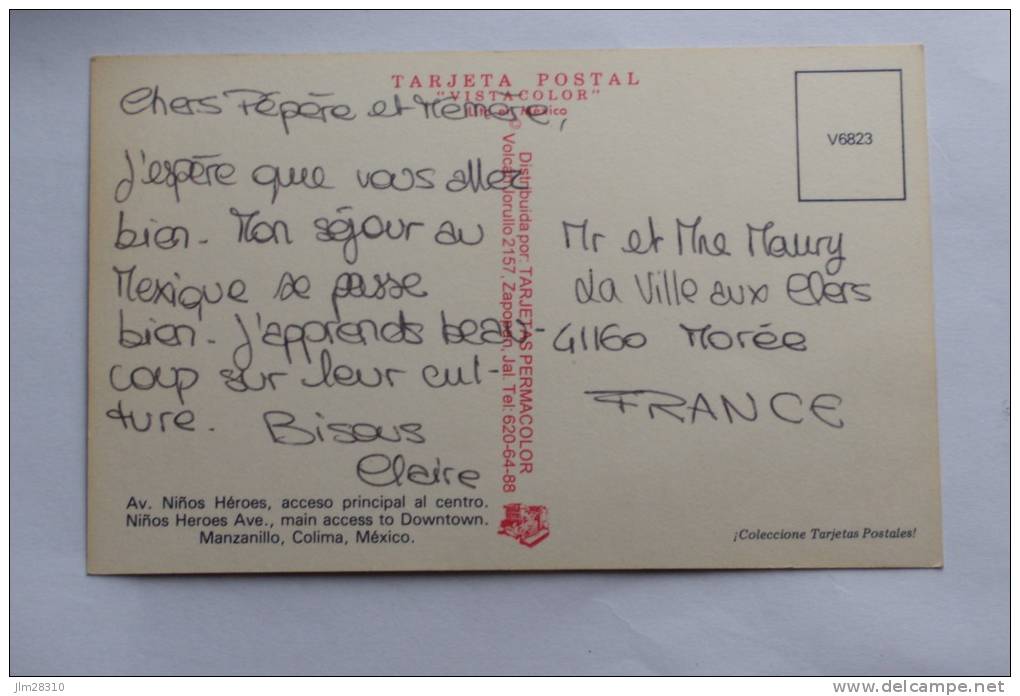 TARJETA POSTAL
"VISTACOLOR"
México
V6823
Chers Pépère et Mémère,
J'espère que vous allez
bien. Mon séjour au
Mexique se passe
bien. J'apprends beau-
coup sur leur cul-
ture. Bisous
Claire
Av. Niños Héroes, acceso principal al centro.
Niños Heroes Ave., main access to Downtown.
Manzanillo, Colima, México.
Distribuida por: TARJETAS PERMACOLOR
Volcán Jorullo 2157, Zapopan, Jal. Tel: 620-64-88
Mr et Mme Maury
La Ville aux Clers
41160 Morée
FRANCE
¡Coleccione Tarjetas Postales!
jlm28310
www.delcampe.net